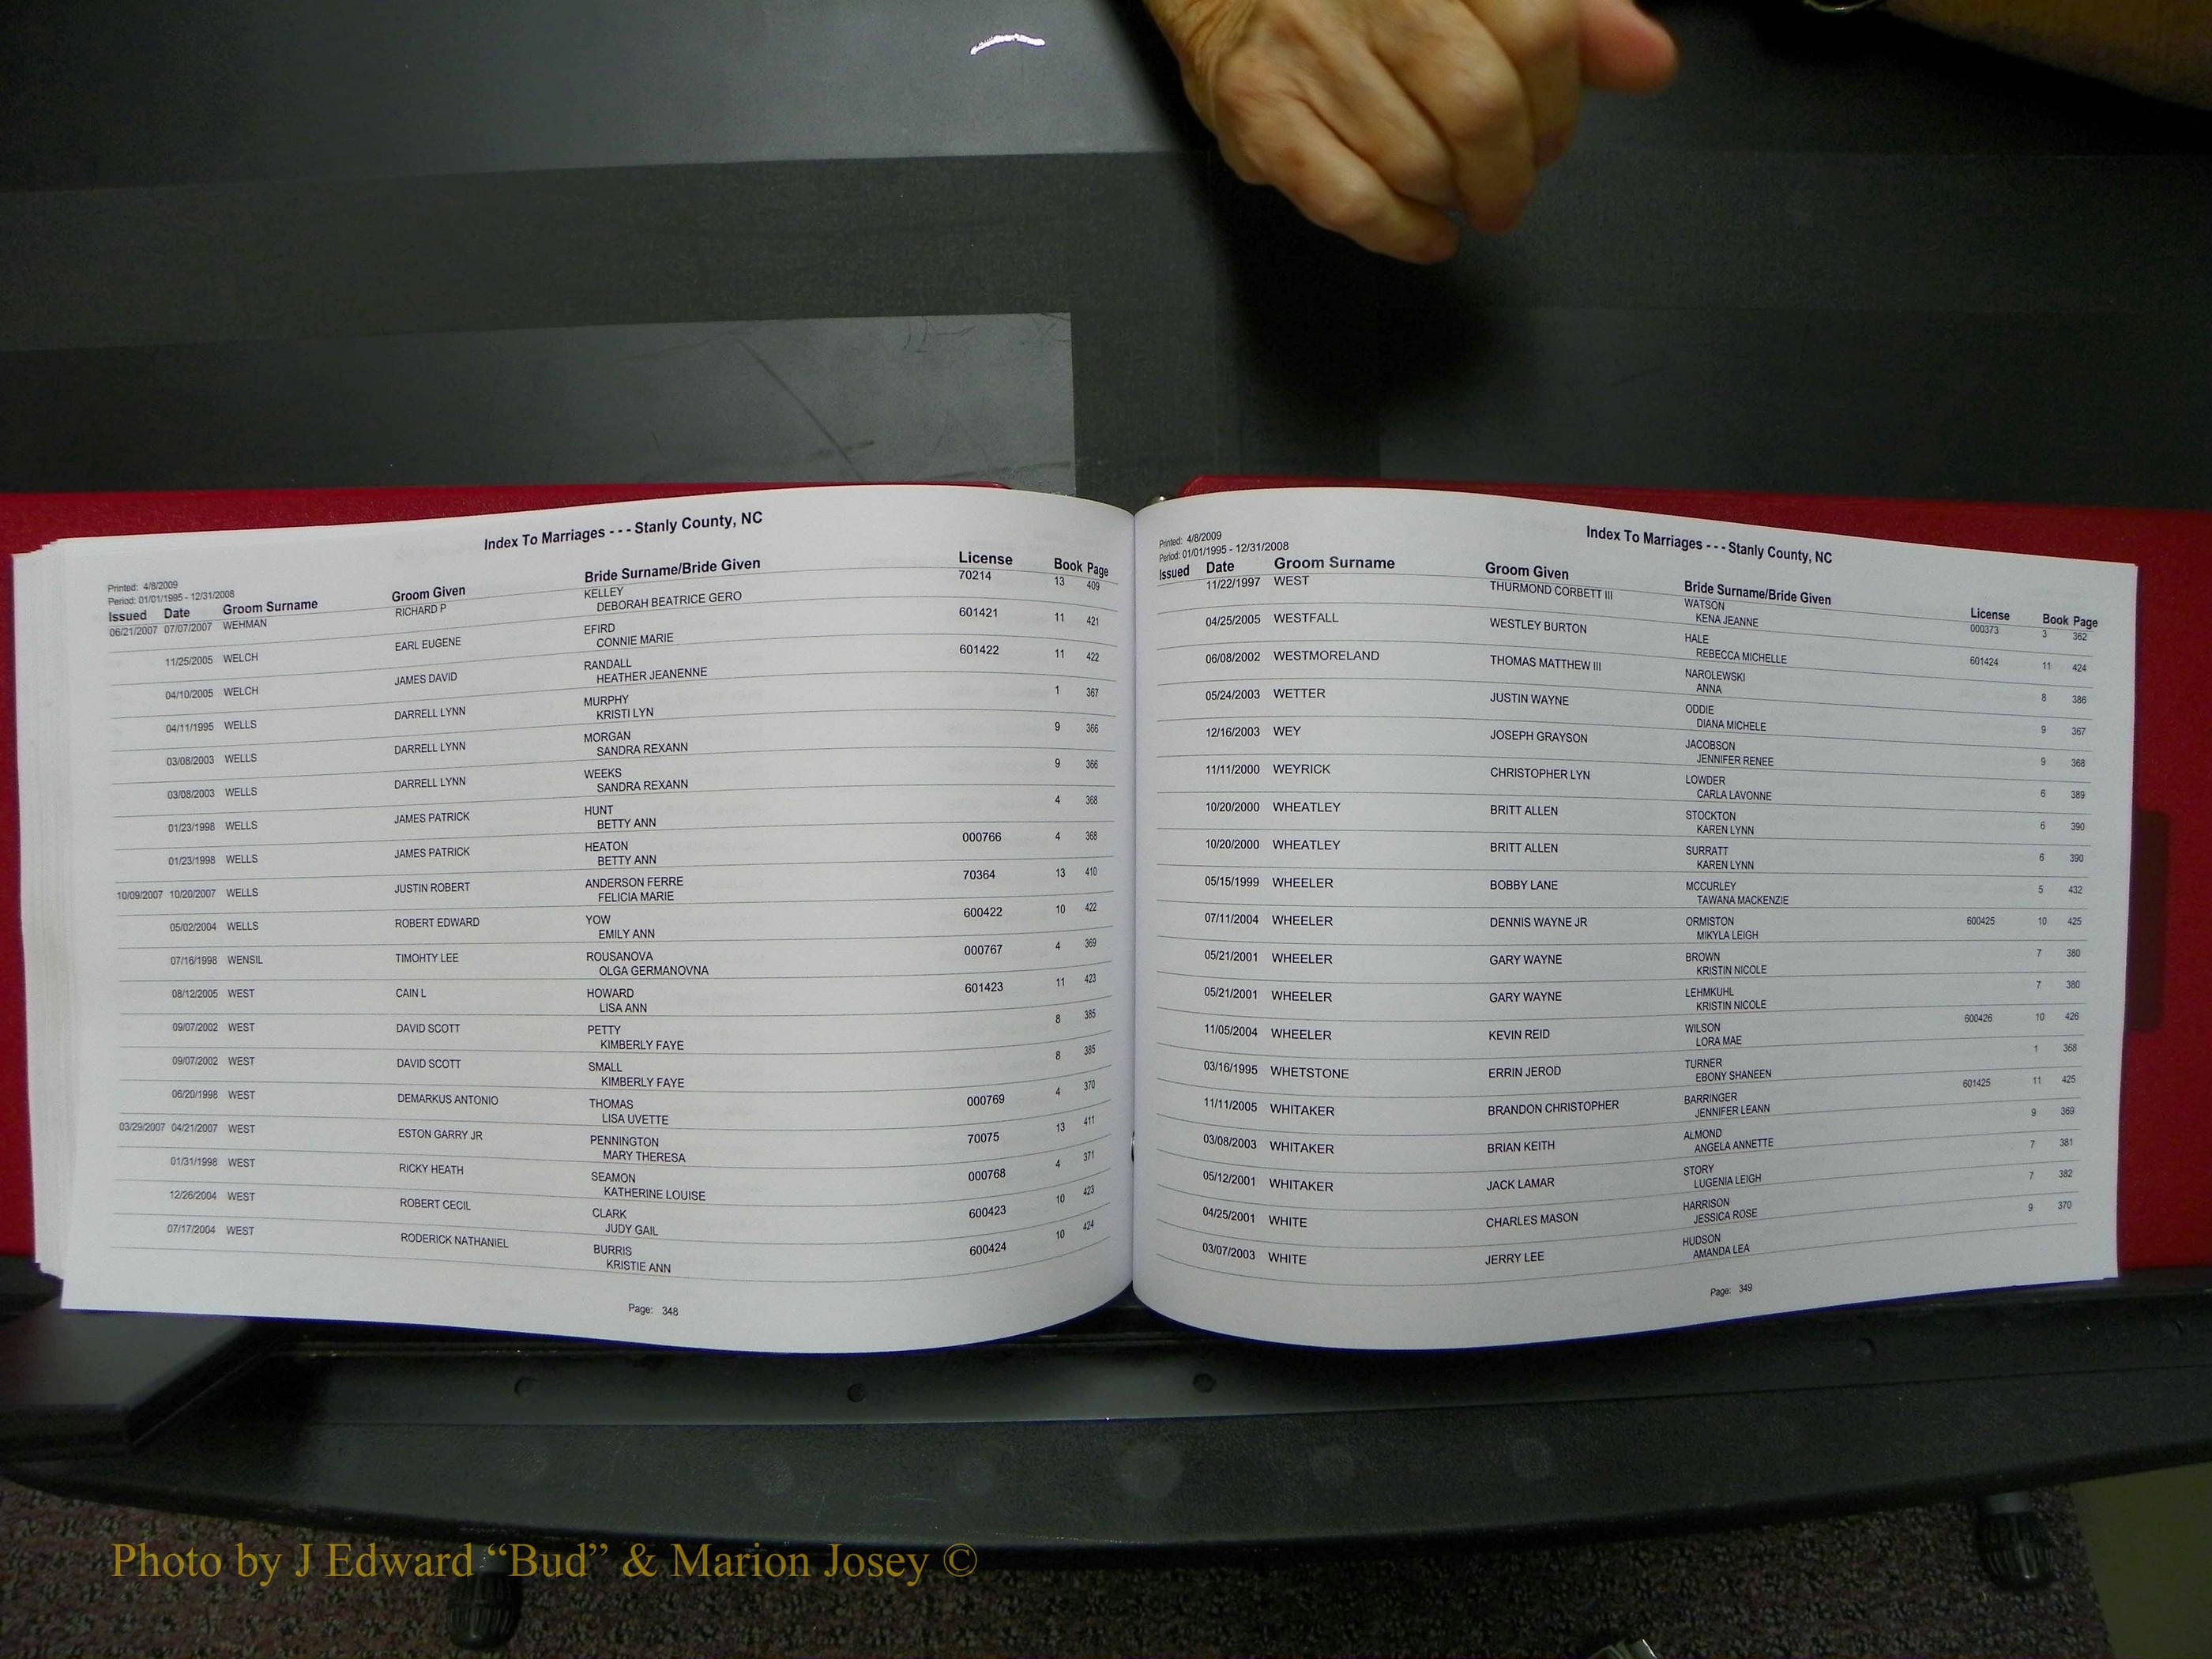 Index To Marriages - - - Stanly County, NC
Printed: 4/8/2009
Period: 01/01/1995 - 12/31/2008
Issued Date Groom Surname Groom Given Bride Surname/Bride Given License Book Page
06/21/2007 07/07/2007 WEHMAN RICHARD P KELLEY 70214 13 409
DEBORAH BEATRICE GERO
11/25/2005 WELCH EARL EUGENE EFIRD 601421 11 421
CONNIE MARIE
04/10/2005 WELCH JAMES DAVID RANDALL 601422 11 422
HEATHER JEANENNE
04/11/1995 WELLS DARRELL LYNN MURPHY 1 367
KRISTI LYN
03/08/2003 WELLS DARRELL LYNN MORGAN 9 366
SANDRA REXANN
03/08/2003 WELLS DARRELL LYNN WEEKS 9 366
SANDRA REXANN
01/23/1998 WELLS JAMES PATRICK HUNT 4 368
BETTY ANN
01/23/1998 WELLS JAMES PATRICK HEATON 000766 4 368
BETTY ANN
10/09/2007 10/20/2007 WELLS JUSTIN ROBERT ANDERSON FERRE 70364 13 410
FELICIA MARIE
05/02/2004 WELLS ROBERT EDWARD YOW 600422 10 422
EMILY ANN
07/16/1998 WENSIL TIMOHTY LEE ROUSANOVA 000767 4 369
OLGA GERMANOVNA
08/12/2005 WEST CAIN L HOWARD 601423 11 423
LISA ANN
09/07/2002 WEST DAVID SCOTT PETTY 8 385
KIMBERLY FAYE
09/07/2002 WEST DAVID SCOTT SMALL 8 385
KIMBERLY FAYE
06/20/1998 WEST DEMARKUS ANTONIO THOMAS 000769 4 370
LISA UVETTE
03/29/2007 04/21/2007 WEST ESTON GARRY JR PENNINGTON 70075 13 411
MARY THERESA
01/31/1998 WEST RICKY HEATH SEAMON 000768 4 371
KATHERINE LOUISE
12/26/2004 WEST ROBERT CECIL CLARK 600423 10 423
JUDY GAIL
07/17/2004 WEST RODERICK NATHANIEL BURRIS 600424 10 424
KRISTIE ANN
Page: 348
Index To Marriages - - - Stanly County, NC
Printed: 4/8/2009
Period: 01/01/1995 - 12/31/2008
Issued Date Groom Surname Groom Given Bride Surname/Bride Given License Book Page
11/22/1997 WEST THURMOND CORBETT III WATSON 000373 3 362
KENA JEANNE
04/25/2005 WESTFALL WESTLEY BURTON HALE 601424 11 424
REBECCA MICHELLE
06/08/2002 WESTMORELAND THOMAS MATTHEW III NAROLEWSKI 8 386
ANNA
05/24/2003 WETTER JUSTIN WAYNE ODDIE 9 367
DIANA MICHELE
12/16/2003 WEY JOSEPH GRAYSON JACOBSON 9 368
JENNIFER RENEE
11/11/2000 WEYRICK CHRISTOPHER LYN LOWDER 6 389
CARLA LAVONNE
10/20/2000 WHEATLEY BRITT ALLEN STOCKTON 6 390
KAREN LYNN
10/20/2000 WHEATLEY BRITT ALLEN SURRATT 6 390
KAREN LYNN
05/15/1999 WHEELER BOBBY LANE MCCURLEY 5 432
TAWANA MACKENZIE
07/11/2004 WHEELER DENNIS WAYNE JR ORMISTON 600425 10 425
MIKYLA LEIGH
05/21/2001 WHEELER GARY WAYNE BROWN 7 380
KRISTIN NICOLE
05/21/2001 WHEELER GARY WAYNE LEHMKUHL 7 380
KRISTIN NICOLE
11/05/2004 WHEELER KEVIN REID WILSON 600426 10 426
LORA MAE
03/16/1995 WHETSTONE ERRIN JEROD TURNER 1 368
EBONY SHANEEN
11/11/2005 WHITAKER BRANDON CHRISTOPHER BARRINGER 601425 11 425
JENNIFER LEANN
03/08/2003 WHITAKER BRIAN KEITH ALMOND 9 369
ANGELA ANNETTE
05/12/2001 WHITAKER JACK LAMAR STORY 7 381
LUGENIA LEIGH
04/25/2001 WHITE CHARLES MASON HARRISON 7 382
JESSICA ROSE
03/07/2003 WHITE JERRY LEE HUDSON 9 370
AMANDA LEA
Page: 349
Photo by J Edward “Bud” & Marion Josey ©